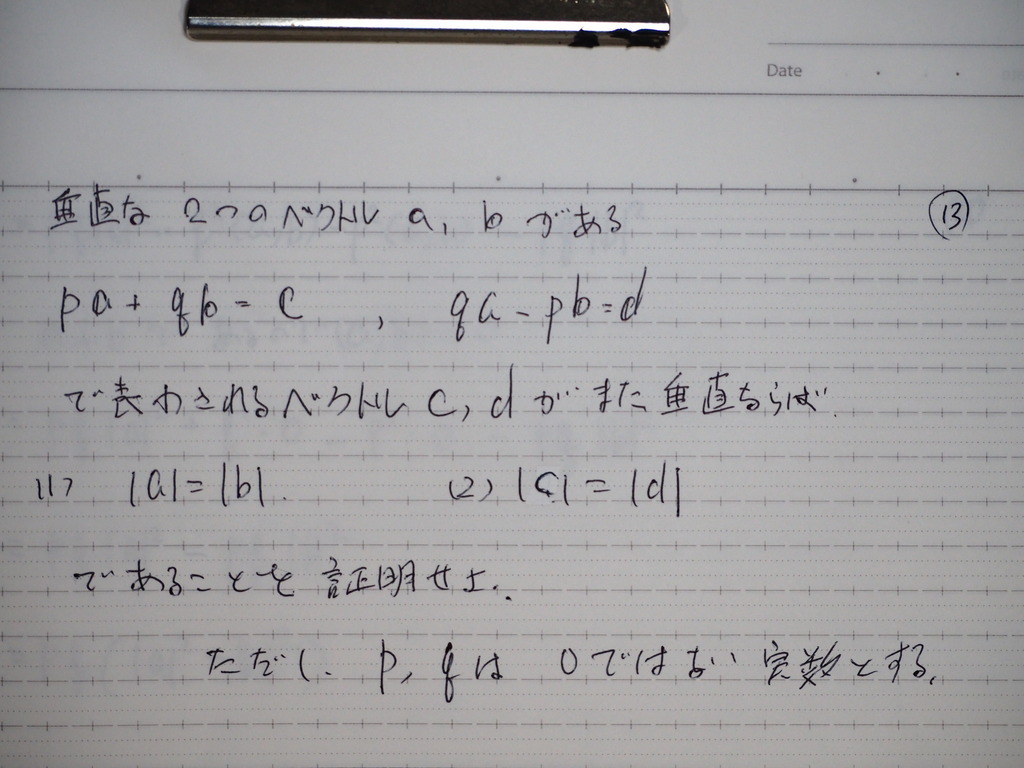 Date
垂直な 2つのベクトル a, b がある ⑬
pa + qb = c , qa - pb = d
で表わされるベクトル c, d がまた垂直ならば.
(1) |a| = |b|. (2) |c| = |d|
であることを証明せよ.
ただし. p, q は 0ではない実数とする.